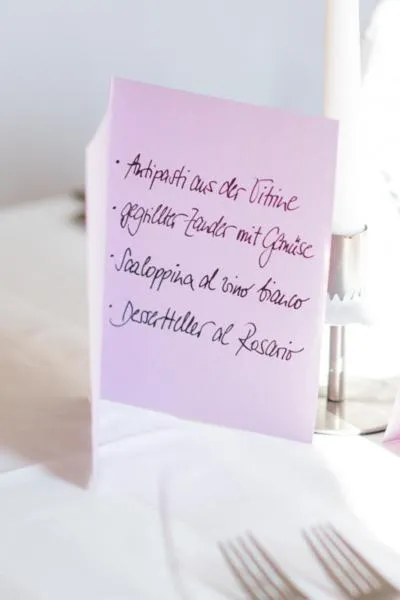 · Antipasti aus der Vitrine
· gegrillter Zander mit Gemüse
· Scaloppina al vino bianco
· Dessertteller al Rosario